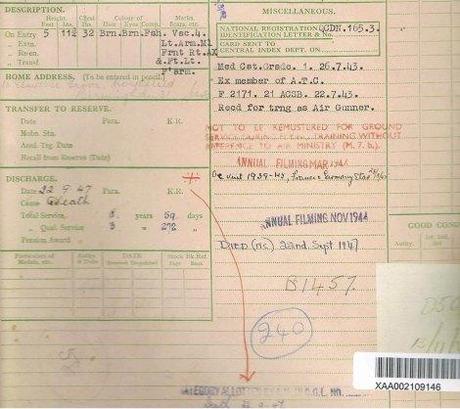 DESCRIPTION.
Height Chest Colour of Marks,
Feet Ins. Ins. Eyes Comp. Scars, etc.
On Entry 5 11½ 32 Brn.Brn.Fsh. Vac.4.
„ Extn. Lt.Arm.Ml
„ Reen. Frnt Rt.AX
„ Transf. & Ft.Lt.
F'arm.
HOME ADDRESS. (To be entered in pencil)
TRANSFER TO RESERVE.
Date Para. K.R.
Mobn. Stn.
Assd. Trg. Date
Recall from Reserve (Date)
DISCHARGE.
Date 22 9 47 Para. K.R.
Cause Death
Total Service, years 59 days
„ Qual. Service 3 „ 272 „
Pension Award
Particulars of Medals, etc. Authy. & Date DATE Stock Bk. Ref.
Page Item
MISCELLANEOUS.
NATIONAL REGISTRATION QCDN.165.3.
IDENTIFICATION LETTER & No.
CARD SENT TO
CENTRAL INDEX DEPT. ON
Med Cat.Grade. 1. 26.7.43.
Ex member of A.T.C.
F 2171. 21 ACSB. 22.7.43.
Recd for trng as Air Gunner.
NOT TO BE REMUSTERED FOR GROUND
TRAINING WITHOUT
REFERENCE TO AIR MINISTRY (M.7.b).
ANNUAL FILMING MAR 1944
1939-45, France & Germany Star
ANNUAL FILMING NOV 1944
DIED 22nd Sept 1947
B1457.
240
GOOD COND
Authy.
XAA002109146